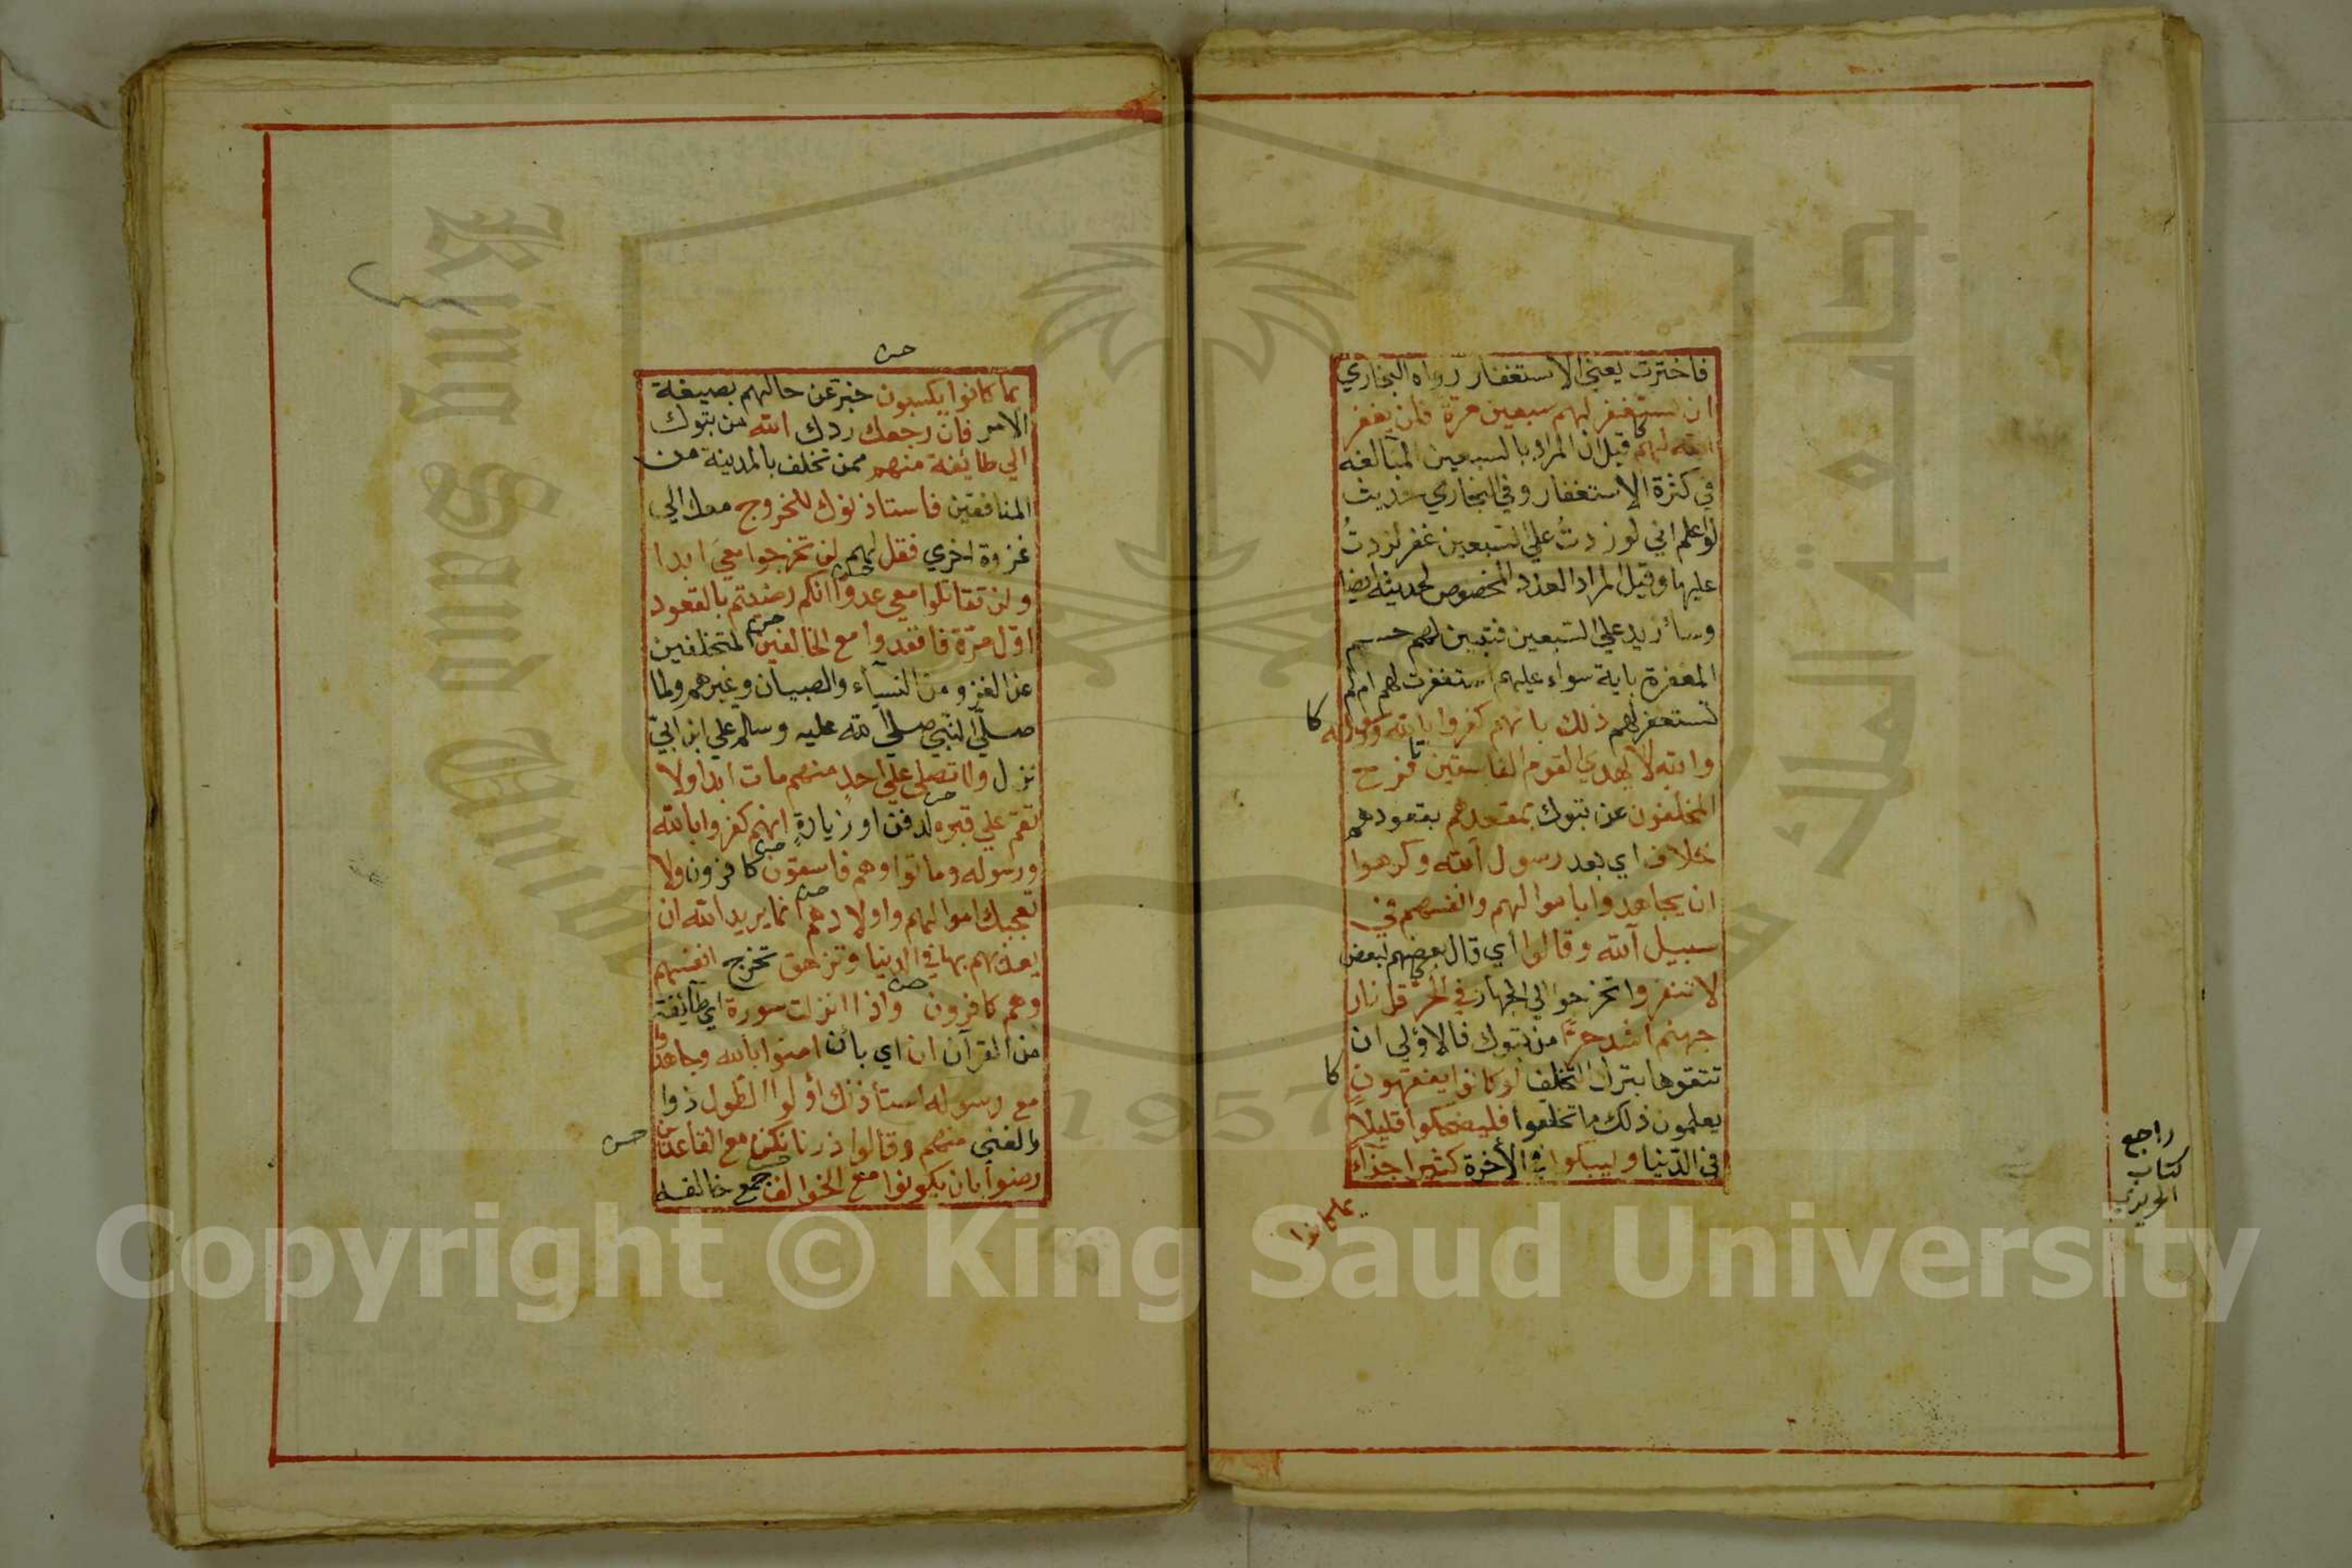 فاخترت يعني الاستغفار رواه البخاري
ان تستغفر لهم سبعين مرة فلن يغفر
الله لهم قيل ان المراد بالسبعين المبالغه
في كثرة الاستغفار وفي البخاري حديث
لو اعلم اني لو زدتُ علي السبعين غفر لزدتُ
عليها وقيل المراد العدد المخصوص لحديثه ايضا
وسأزيد علي السبعين فتبين لهم حسم
المغفرة باية سواء عليهم استغفرت لهم ام لم
تستغفر لهم ذلك بانهم كفروا بالله ورسوله
والله لا يهدي القوم الفاسقين فرح
المخلفون عن تبوك بمقعدهم بقعودهم
خلاف اي بعد رسول الله وكرهوا
ان يجاهدوا باموالهم وانفسهم في
سبيل الله وقالوا اي قال بعضهم لبعض
لا تنفروا تخرجوا الي الجهاد في الحر قل نار
جهنم اشد حرًّا من تبوك فالاولي ان
تتقوها بترك التخلف لو كانوا يفقهون
يعلمون ذلك ما تخلفوا فليضحكوا قليلا
في الدنيا وليبكوا في الأخرة كثيرا جزاء
بما كانوا
راجع
كتاب
بما كانوا يكسبون خبر عن حالهم بصيغة
الامر فان رجعك ردك الله من تبوك
الي طائفة منهم ممن تخلف بالمدينة من
المنافقين فاستاذنوك للخروج معك الي
غزوة اخري فقل لهم لن تخرجوا معي ابدا
ولن تقاتلوا معي عدوا انكم رضيتم بالقعود
اول مرة فاقعدوا مع الخالفين المتخلفين
عن الغزو من النسآء والصبيان وغيرهم ولما
صلي النبي صلي الله عليه وسلم علي ابن ابيّ
نزل ولا تصلي علي احد منهم مات ابدا ولا
تقم علي قبره لدفن او زيارة انهم كفروا بالله
ورسوله وماتوا وهم فاسقون كافرون ولا
تعجبك اموالهم واولادهم انما يريد الله ان
يعذبهم بها في الدنيا وتزهق تخرج انفسهم
وهم كافرون واذا انزلت سورة اي طآئفة
من القرآن ان اي بأن امنوا بالله وجاهدوا
مع رسوله استأذنك اولوا الطول ذوا
الغني منهم وقالوا ذرنا نكن مع القاعدين
رضوا بان يكونوا مع الخوالف جمع خالفه
Copyright © King Saud University
King Saud University
جامعة الملك سعود
1957